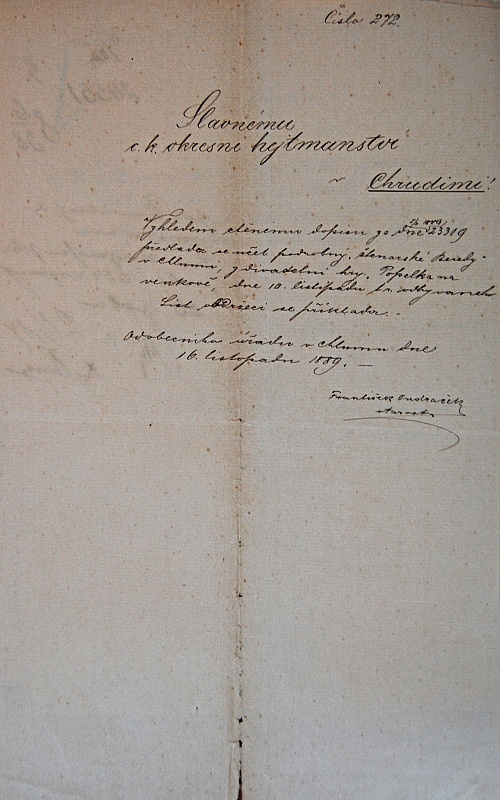 Číslo 272.
Slavnému
c. k. okresní hejtmanství
v Chrudimi!
Vzhledem ctěnému dopisu ze dne 23319
předkládá se účet podrobný, čtenářské Besedy
v Chlumu, z divadelní hry, Popelka na
venkově, dne 10. listopadu t. r. odbývaneh
List obdržecí se přikládá.
Od obecního úřadu v Chlumu dne
16. listopadu 1889.
František Ondráček
starosta